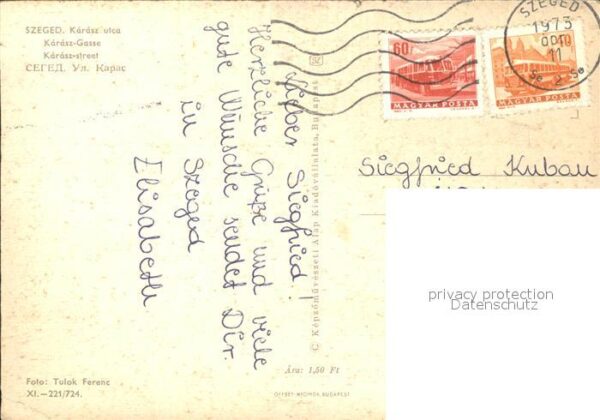 SZEGED. Kárász utca
Kárász-Gasse
Kárász-street
СЕГЕД. Ул. Карас
Lieber Siegfried!
Herzliche Grüße und viele
gute Wünsche sendet Dir
in Szeged
Elisabeth
Foto: Tulok Ferenc
XI.-221/724.
© Képzőművészeti Alap Kiadóvállalata, Budapest
Ára: 1,50 Ft
OFFSET-NYOMDA, BUDAPEST
60f
MAGYAR POSTA
40
MAGYAR POSTA
SZEGED
1973
OCT
11
Siegfried Kubau
privacy protection
Datenschutz